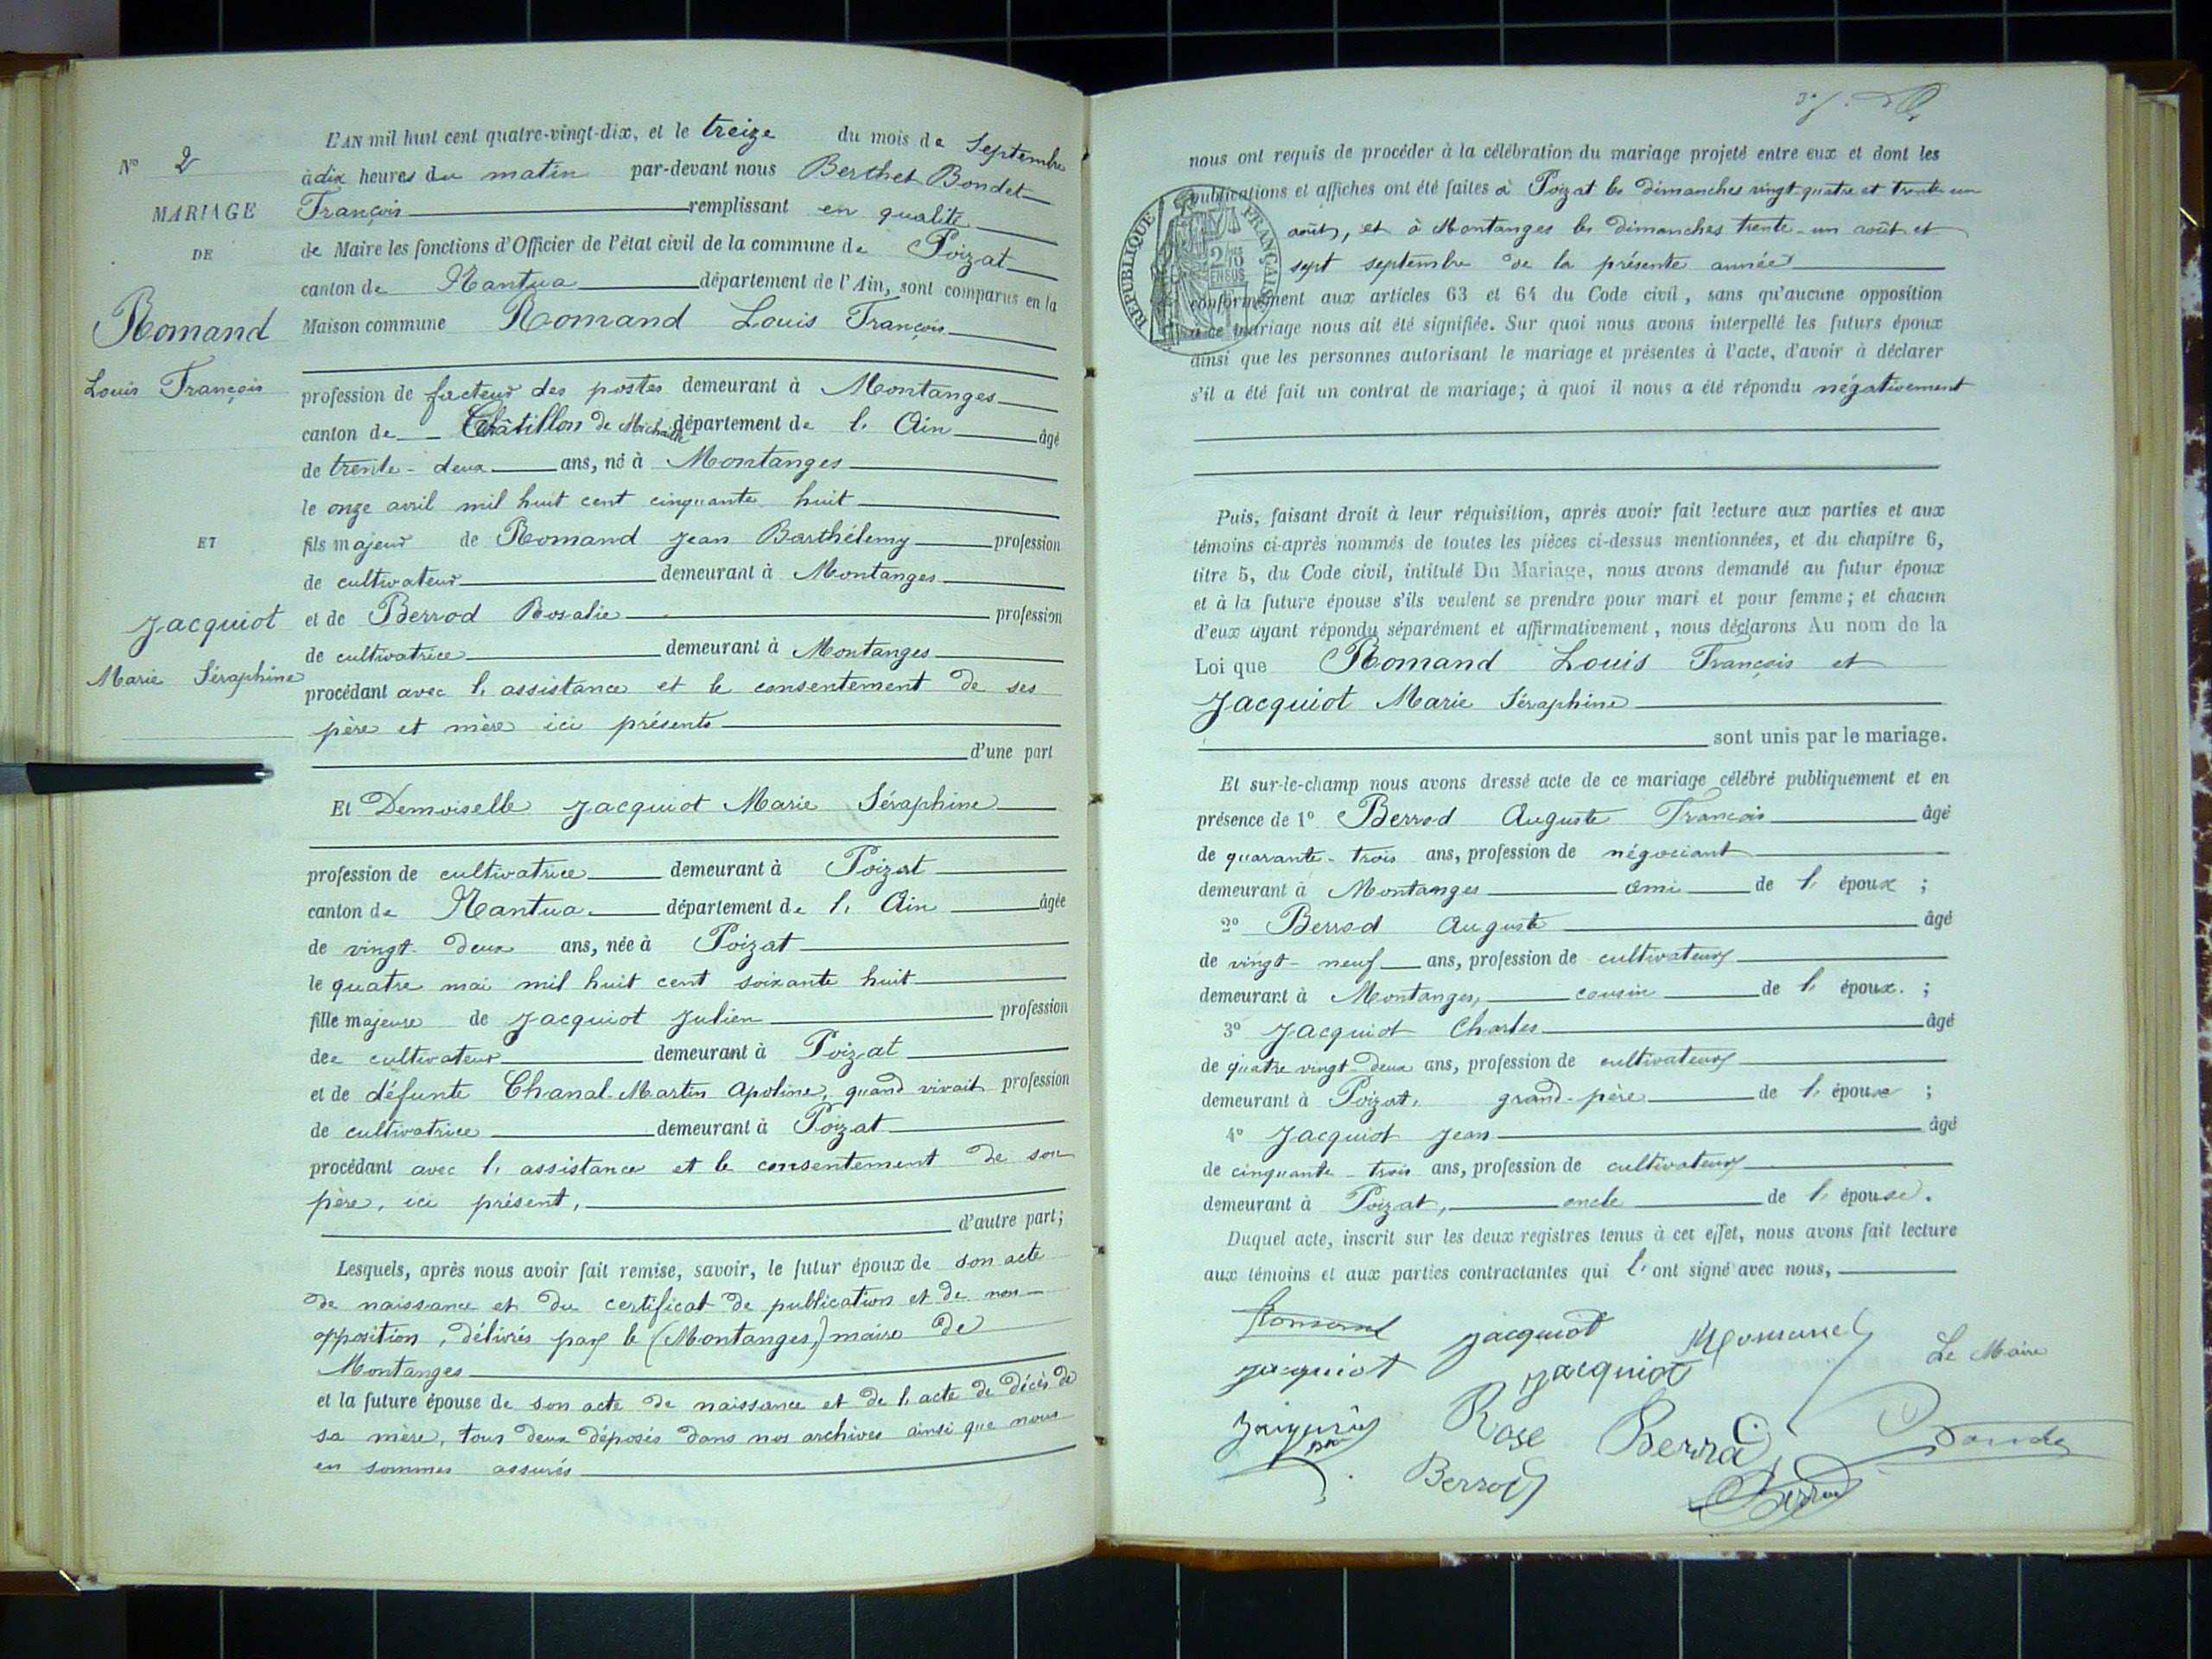 N° 2
MARIAGE
DE
Romand
Louis François
ET
Jacquiot
Marie Séraphine
L'AN mil huit cent quatre-vingt-dix, et le treize du mois de Septembre
à dix heures du matin par-devant nous Berthet Bondet
François remplissant en qualité
de Maire les fonctions d'Officier de l'état civil de la commune de Poizat
canton de Nantua département de l'Ain, sont comparus en la
Maison commune Romand Louis François
profession de facteur des postes demeurant à Montanges
canton de Châtillon de Michaille département de l'Ain âgé
de trente-deux ans, né à Montanges
le onze avril mil huit cent cinquante huit
fils majeur de Romand Jean Barthélemy profession
de cultivateur demeurant à Montanges
et de Berrod Rosalie profession
de cultivatrice demeurant à Montanges
procédant avec l'assistance et le consentement de ses
père et mère ici présents
d'une part
Et Demoiselle Jacquiot Marie Séraphine
profession de cultivatrice demeurant à Poizat
canton de Nantua département de l'Ain âgée
de vingt-deux ans, née à Poizat
le quatre mai mil huit cent soixante huit
fille majeure de Jacquiot Julien profession
de cultivateur demeurant à Poizat
et de défunte Chanal-Martin Apoline, quand vivait profession
de cultivatrice demeurant à Poizat
procédant avec l'assistance et le consentement de son
père, ici présent,
d'autre part;
Lesquels, après nous avoir fait remise, savoir, le futur époux de son acte
de naissance et du certificat de publication et de non-
opposition, délivrés par le (Montanges) maire de
Montanges
et la future épouse de son acte de naissance et de l'acte de décès de
sa mère, tous deux déposés dans nos archives ainsi que nous
en sommes assurés
nous ont requis de procéder à la célébration du mariage projeté entre eux et dont les
publications et affiches ont été faites à Poizat les dimanches vingt-quatre et trente un
août, et à Montanges les dimanches trente-un août et
sept septembre de la présente année
conformément aux articles 63 et 64 du Code civil, sans qu'aucune opposition
à ce mariage nous ait été signifiée. Sur quoi nous avons interpellé les futurs époux
ainsi que les personnes autorisant le mariage et présentes à l'acte, d'avoir à déclarer
s'il a été fait un contrat de mariage; à quoi il nous a été répondu négativement
RÉPUBLIQUE FRANÇAISE
Puis, faisant droit à leur réquisition, après avoir fait lecture aux parties et aux
témoins ci-après nommés de toutes les pièces ci-dessus mentionnées, et du chapitre 6,
titre 5, du Code civil, intitulé Du Mariage, nous avons demandé au futur époux
et à la future épouse s'ils veulent se prendre pour mari et pour femme; et chacun
d'eux ayant répondu séparément et affirmativement, nous déclarons Au nom de la
Loi que Romand Louis François et
Jacquiot Marie Séraphine
sont unis par le mariage.
Et sur-le-champ nous avons dressé acte de ce mariage célébré publiquement et en
présence de 1° Berrod Auguste François âgé
de quarante-trois ans, profession de négociant
demeurant à Montanges ami de l'époux ;
2° Berrod Auguste âgé
de vingt-neuf ans, profession de cultivateur
demeurant à Montanges, cousin de l'époux. ;
3° Jacquiot Charles âgé
de quatre vingt-deux ans, profession de cultivateur
demeurant à Poizat, grand-père de l'épouse ;
4° Jacquiot Jean âgé
de cinquante-trois ans, profession de cultivateur
demeurant à Poizat, oncle de l'épouse.
Duquel acte, inscrit sur les deux registres tenus à cet effet, nous avons fait lecture
aux témoins et aux parties contractantes qui l'ont signé avec nous,
Romand Jacquiot Romand
Le Maire
Jacquiot Jacquiot
Rose Berrod
Berrod